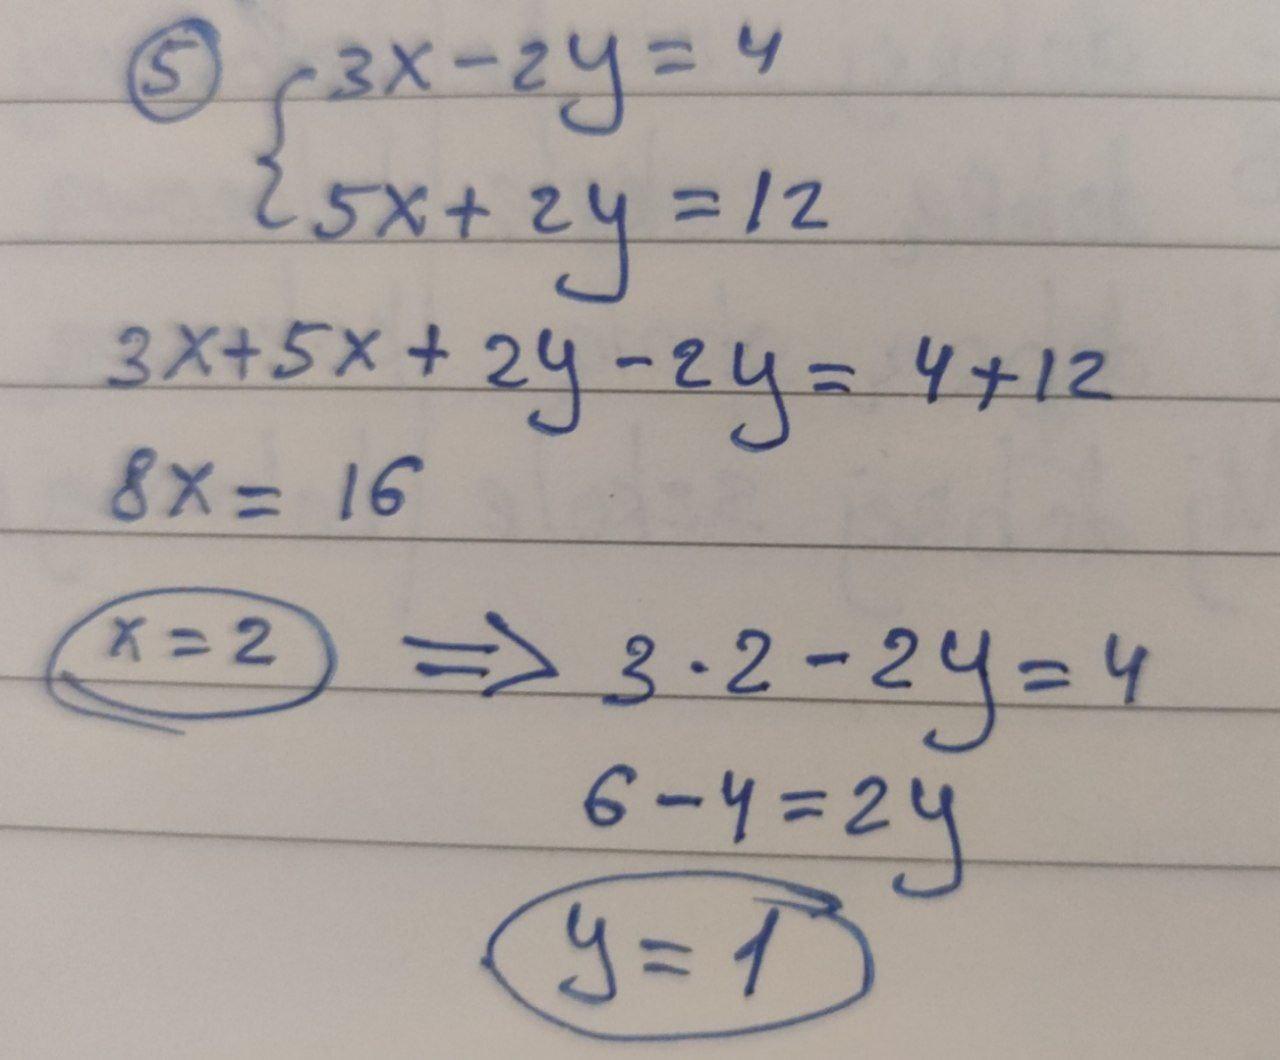 ⑤ { 3x - 2y = 4
5x + 2y = 12
3x + 5x + 2y - 2y = 4 + 12
8x = 16
x = 2 ⇒ 3 · 2 - 2y = 4
6 - 4 = 2y
y = 1